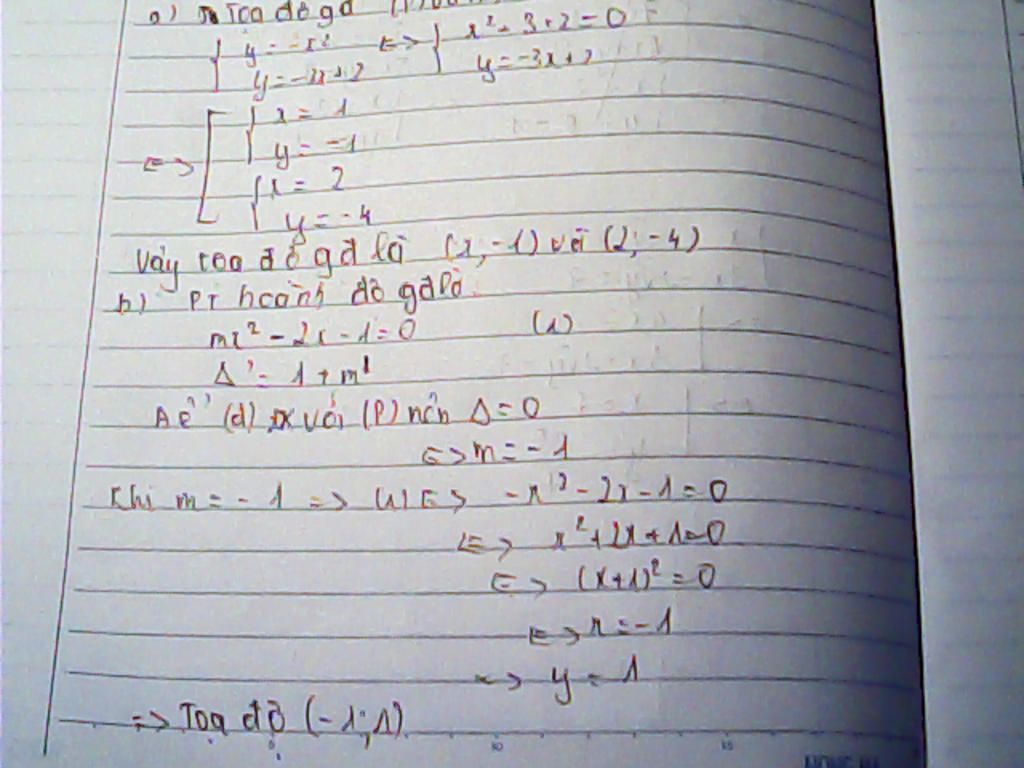 a) Toạ độ gđ (P)
y = -x² <=> x² - 3 + 2 = 0
y = -3x + 2 y = -3x + 2
x = 1
<=> y = -1
x = 2
y = -4
Vậy toạ độ gđ là (1; -1) với (2; -4)
b) PT hoành độ gđ là
mx² - 2x - 1 = 0 (1)
Δ' = 1 + m
Để (d) tx với (P) nên Δ = 0
<=> m = -1
Khi m = -1 => (1) <=> -x² - 2x - 1 = 0
<=> x² + 2x + 1 = 0
<=> (x+1)² = 0
<=> x = -1
=> y = 1
=> Toạ độ (-1; 1)